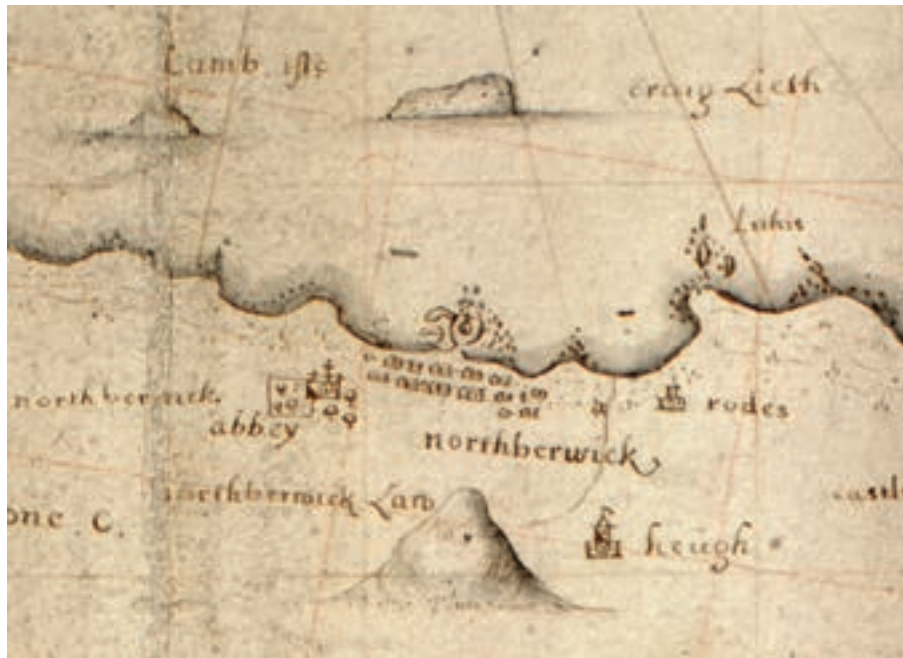 Lamb. isle
craig Lieth
northberwick.
abbey
rodes
northberwick
northberwick Law
castl
one. C.
heugh